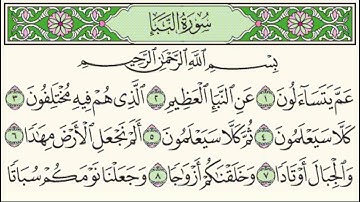 سُورَةُ النَّبَإِ
بِسْمِ اللَّهِ الرَّحْمَٰنِ الرَّحِيمِ
عَمَّ يَتَسَاءَلُونَ ١ عَنِ النَّبَإِ الْعَظِيمِ ٢ الَّذِي هُمْ فِيهِ مُخْتَلِفُونَ ٣
كَلَّا سَيَعْلَمُونَ ٤ ثُمَّ كَلَّا سَيَعْلَمُونَ ٥ أَلَمْ نَجْعَلِ الْأَرْضَ مِهَٰدًا ٦
وَالْجِبَالَ أَوْتَادًا ٧ وَخَلَقْنَاكُمْ أَزْوَاجًا ٨ وَجَعَلْنَا نَوْمَكُمْ سُبَاتًا